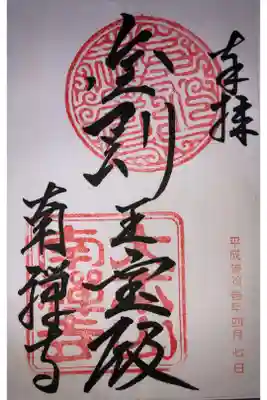 奉拝
金剛王宝殿
南禅寺
平成年四月七日